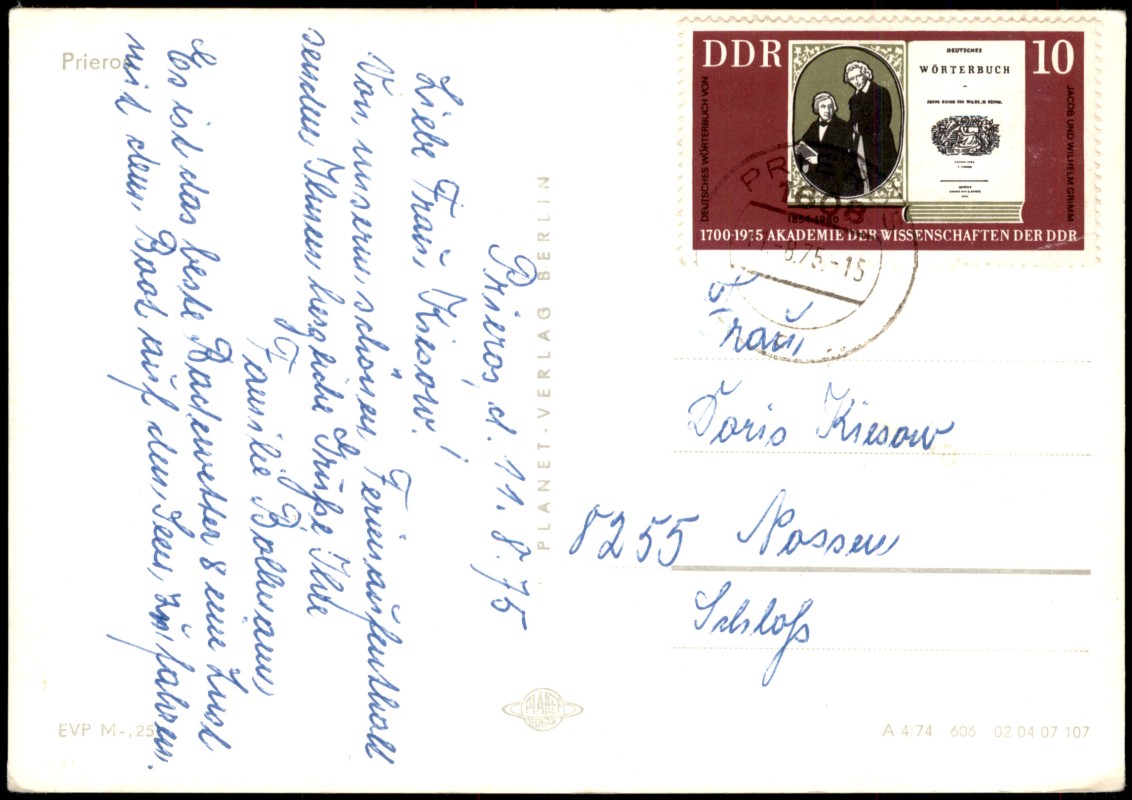 Prieros
Prieros, d. 11.8.75
Liebe Frau Kiesow!
Von unserem schönen Ferienaufenthalt
senden Ihnen herzliche Grüße Ihre
Familie Bollmann
Es ist das beste Badewetter & eine Lust
mit dem Boot auf den Seen zu fahren.
EVP M -,25
PLANET-VERLAG BERLIN
PLANET
DDR
10
DEUTSCHES WÖRTERBUCH VON
JACOB UND WILHELM GRIMM
DEUTSCHES
WÖRTERBUCH
1854-1960
1700-1975 AKADEMIE DER WISSENSCHAFTEN DER DDR
1608
-8.75.-15
Frau
Doris Kiesow
8255 Nossen
Schloß
A 4/74 606 02 04 07 107